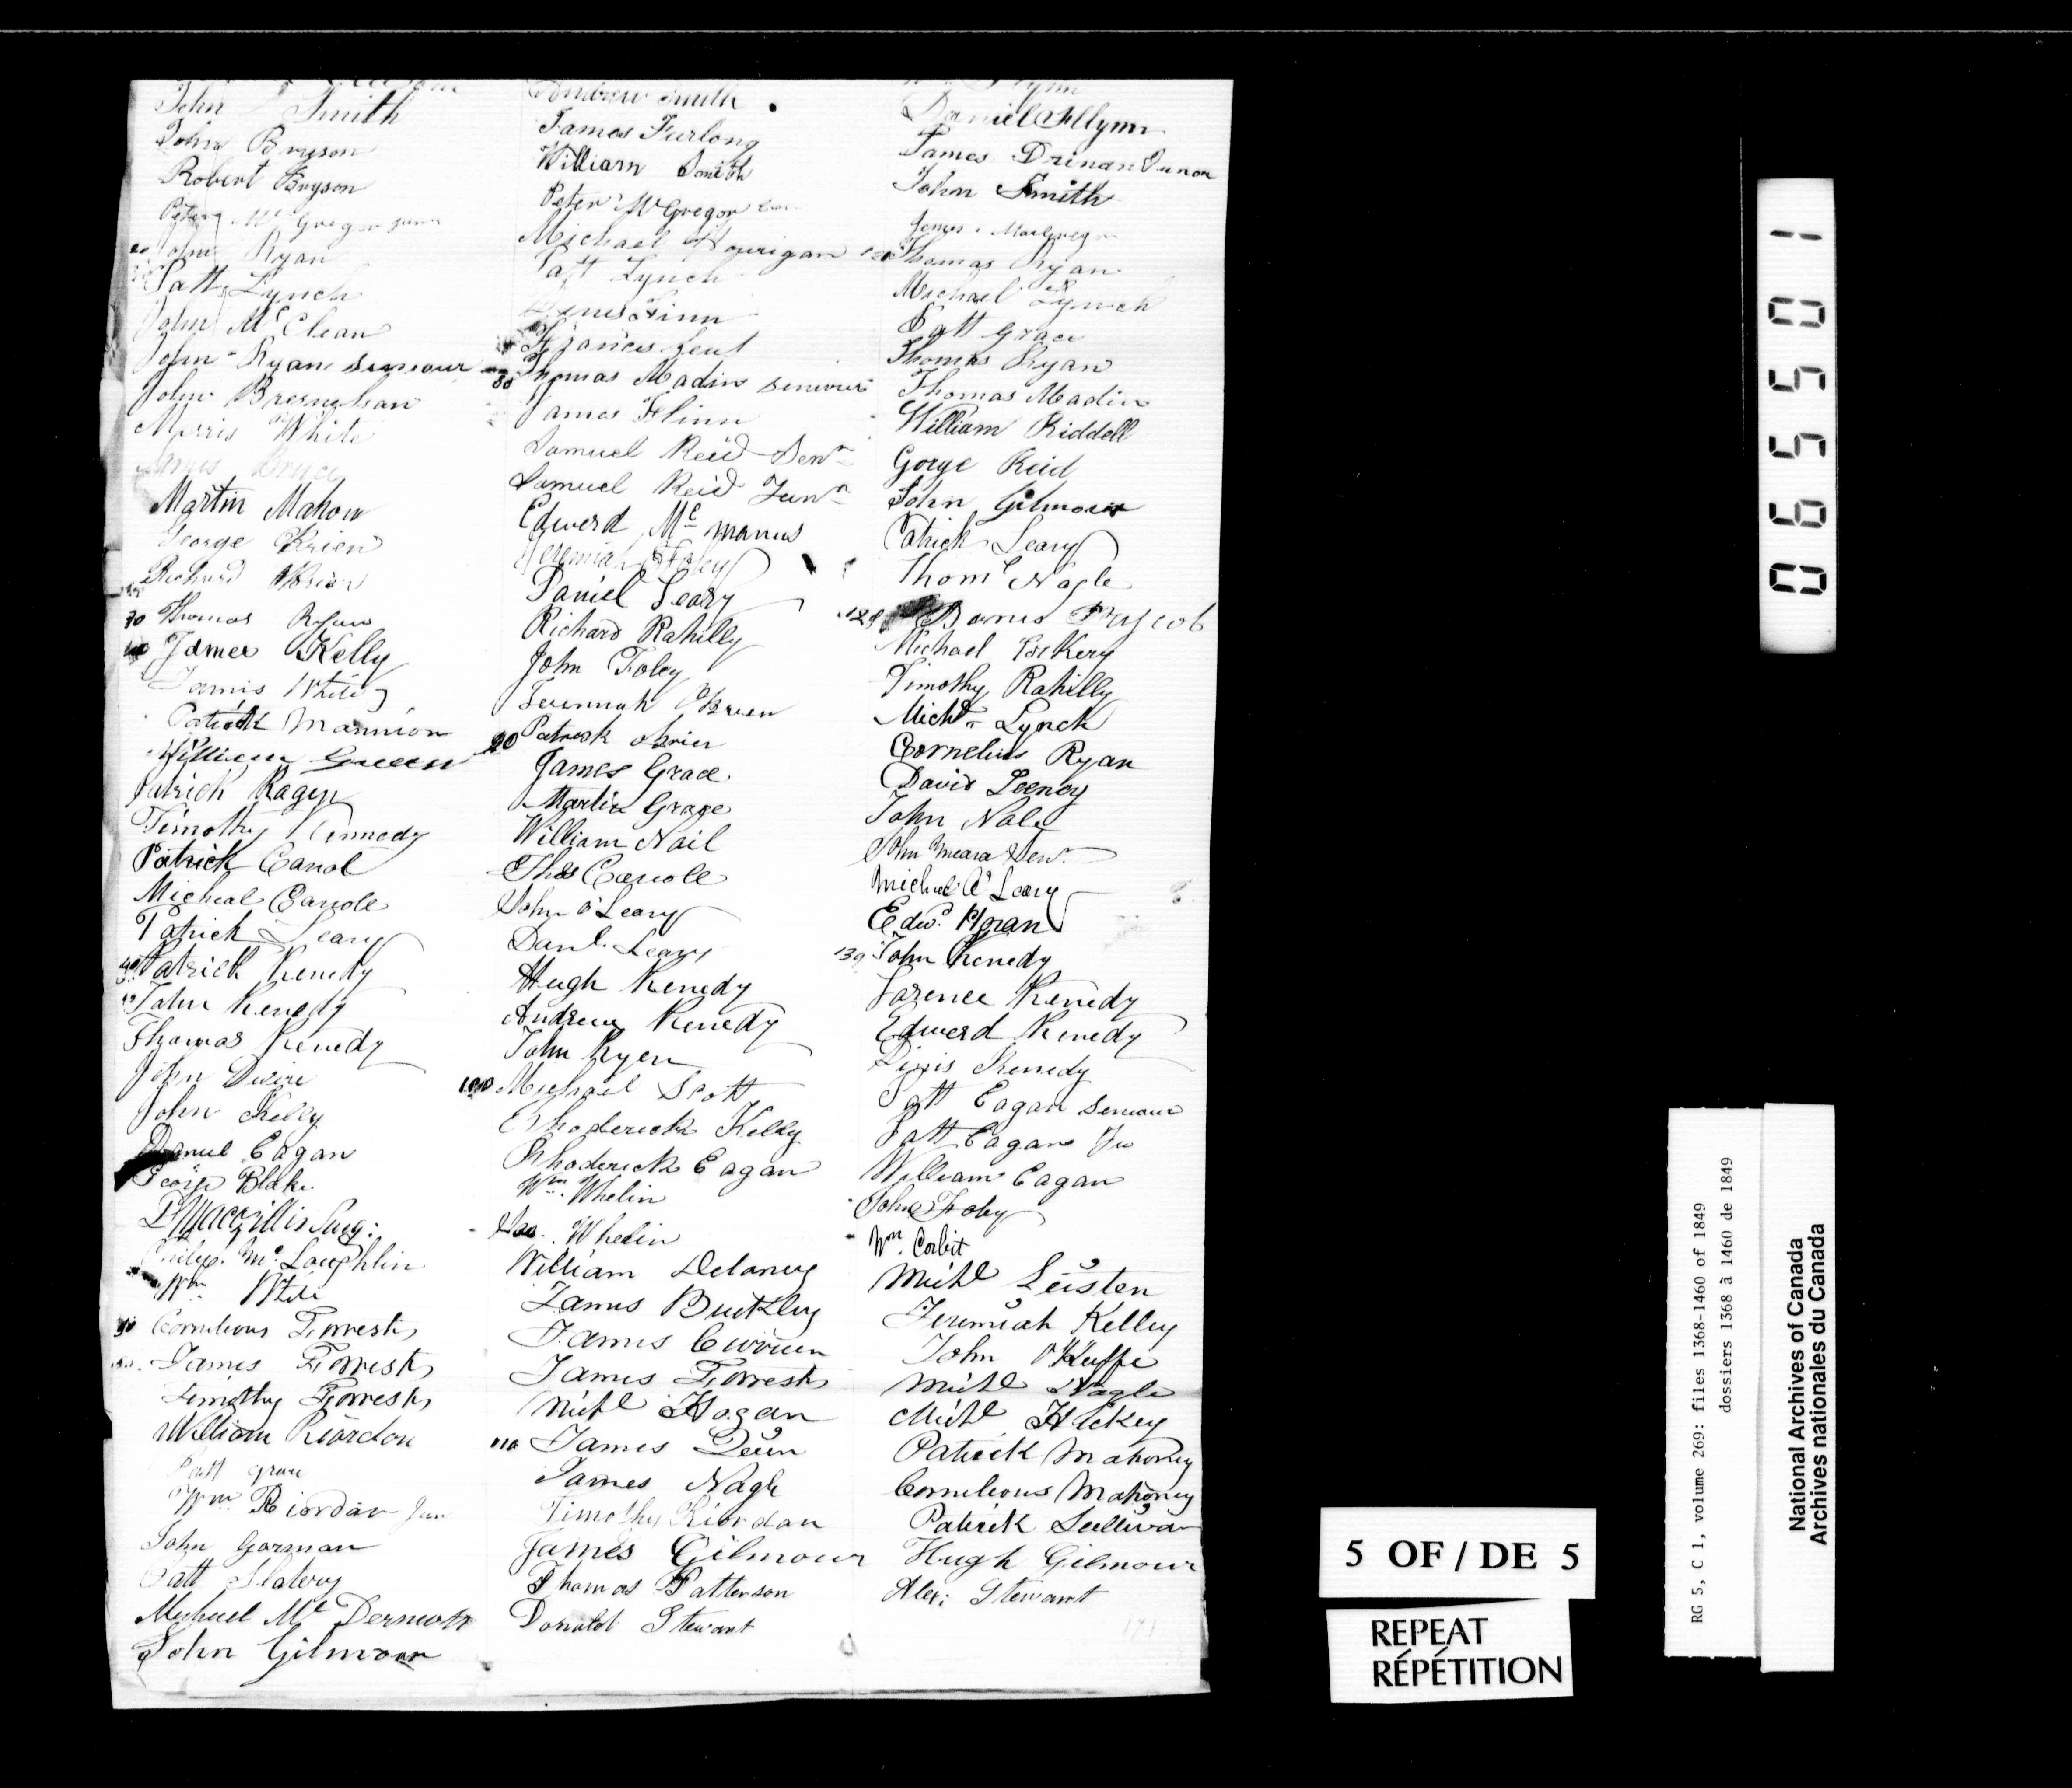 John Smith
John Bryson
Robert Bryson
Peter McGregor
John Ryan
Patt Lynch
John McClean
John Ryan
John Bresnehan
Morris White
James Bruce
Martin Mahow
George Brien
Richard
30 Thomas Ryan
James Kelly
Jamis White
Patrick Mannion
William Green
Patrick Ragen
Timothy Kennedy
Patrick Carrol
Micheal Carrole
Patrick Leary
Patrick Kenedy
John Kenedy
Thomas Kenedy
John Dwire
John Kelly
Daniel Eagan
George Blake
Philip Mc Laughlin
Wm
Cornelious Forrest
James Forrest
Timothy Forrest
William Riordon
Patt Grace
Wm Riordan Jun
John Gorman
Patt Slatery
Michael Mc Dermott
John Gilmour
Andrew Smith
James Furlong
William Smith
Peter McGregor
Michael Hourigan
Patt Lynch
Denis Finn
Francis
80 Thomas Madin
James Flinn
Samuel Reid Senr
Samuel Reid Junr
Edwerd Mc manus
Jeremiah Foley
Daniel Leary
Richard Rahilly
John Foley
OBrien
90 Patrick
James Grace
Martin Grace
William Nail
Thos Carrole
John O'Leary
Danl. Leary
Hugh Kenedy
Andrew Kenedy
John Ryen
100 Michael Scott
Rhoderick Kelly
Rhoderick Eagan
Wm Whelin
Whelin
William Delaney
James Buckley
James
James Forrest
Michl Hogan
110 James
James Nagle
Timothy Riordan
James Gilmour
Thomas Patterson
Donald Stewart
Flynn
Daniel Fllynn
James Drinan
John Smith
James MacGregor
120 Thomas Ryan
Michael Lynch
Patt Grace
Thomas Ryan
Thomas Madin
William Riddell
Gorge Reid
John Gilmour
Patrick Leary
Thoms Nagle
129
Michael
Timothy Rahilly
Michl Lynch
Cornelius Ryan
David
John
John Meara Senr.
Michael O'Leary
Edwd. Horan
139 John Kenedy
Larence Kenedy
Edwerd Kenedy
Kenedy
Patt Eagan
Patt Eagan
William Eagan
John Foley
Wm. Corbit
Michl
Jeremiah Kelley
John O'Keeffe
Michl Nagle
Michl Hickey
Patrick Mahoney
Cornelious Mahoney
Patrick Sullivan
Hugh Gilmour
Alex: Stewart
065501
5 OF / DE 5
REPEAT
RÉPÉTITION
RG 5, C 1, volume 269: files 1368-1460 of 1849
dossiers 1368 à 1460 de 1849
National Archives of Canada
Archives nationales du Canada